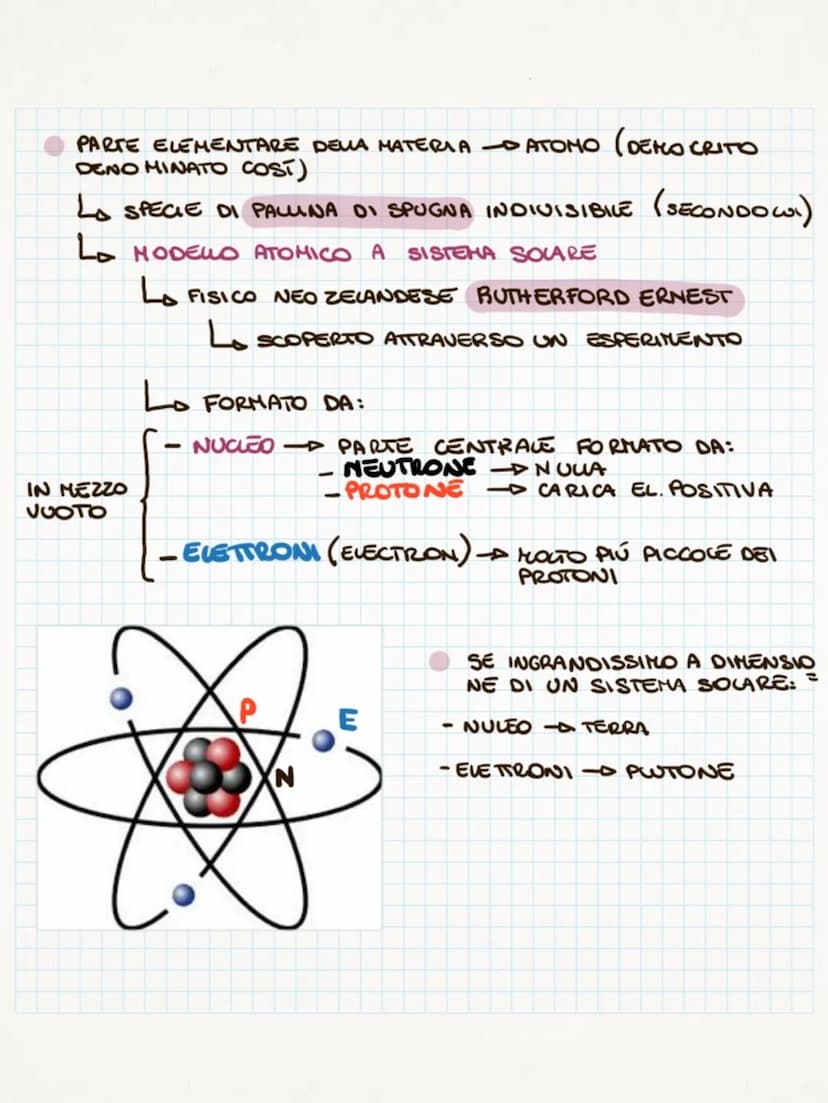 PARTE ELEMENTARE DELLA MATERIA → ATOMO (DEMOCRITO
DENOMINATO COSÍ)
↳ SPECIE DI PALLINA DI SPUGNA INDIVISIBILE (SECONDO LUI)
↳ MODELLO ATOMICO A SISTEMA SOLARE
↳ FISICO NEOZELANDESE RUTHERFORD ERNEST
↳ SCOPERTO ATTRAVERSO UN ESPERIMENTO
↳ FORMATO DA:
- NUCLEO → PARTE CENTRALE FORMATO DA:
- NEUTRONE → NULLA
- PROTONE → CARICA EL. POSITIVA
IN MEZZO
VUOTO
- ELETTRONI (ELECTRON) → MOLTO PIÚ PICCOLE DEI
PROTONI
P
E
N
SE INGRANDISSIMO A DIMENSIO
NE DI UN SISTEMA SOLARE: =
- NULEO → TERRA
- ELETTRONI → PLUTONE